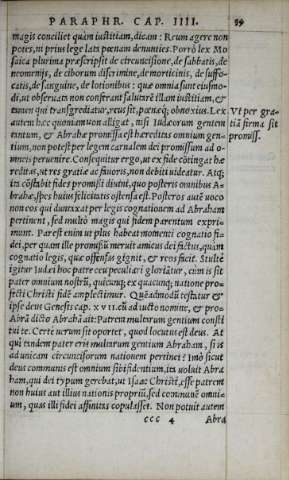 PARAPHR. CAP. IIII. 89
magis conciliet quàm iustitiam, dicam: Reum agere non
potes, ni prius lege lata pœnam denunties. Porrò lex Mo
saica plurima præscripsit de circuncisione, de sabbatis, de
neomenijs, de ciborum discrimine, de morticinis, de suffo-
catis, de sanguine, de lotionibus: quæ omnia sunt eiusmo-
di, ut obseruata non conferant saluificã illam iustitiam, &
tamen qui transgrediatur, reus sit, pœnæq; obnoxius. Lex
autem hæc quoniam non alligat, nisi Iudæorum gentem
tantum, & Abrahæ promissa est hæreditas omnium gen-
tium, non potest per legem carnalem dei promissum ad o-
mneis peruenire. Consequitur ergo, ut ex fide cõtingat hæ
reditas, ut res gratiæ ac fauoris, non debiti uideatur. Atq;
ita cõstabit fides promissi diuini, quo posteris omnibus A-
brahæ, spes huius felicitatis ostensa est. Posteros autẽ uoco
non eos qui duntaxat per legis cognationem ad Abraham
pertinent, sed multò magis qui fidem parentum expri-
munt. Par est enim ut plus habeat momenti cognatio fi-
dei, per quam ille promissũ meruit amicus dei factus, quàm
cognatio legis, quæ offensas gignit, & reos facit. Stulte
igitur Iudæi hoc patre ceu peculiari gloriãtur, cùm is sit
pater omnium nostrũ, quicunq; ex quacunq; natione pro-
fecti Christi fidẽ amplectimur. Quẽadmodũ testatur &
ipse deus Genesis cap. xvii. cũ aucto nomine, & pro
Abrã dicto Abrahã ait: Patrem multarum gentium consti
tui te. Certè uerum sit oportet, quod locutus est deus. At
qui tandem pater erit multarum gentium Abraham, si is
ad unicam circuncisorum nationem pertinet? Imò sicut
deus communis est omnium sibi fidentium, ita uoluit Abra
ham, qui dei typum gerebat, ut Isaac Christi, esse patrem
non huius aut illius nationis propriũ, sed communẽ omni-
um, quos illi fidei affinitas copulasset. Non potuit autem
ccc 4 Abra
Vt per gra-
tiã firma sit
promiss.